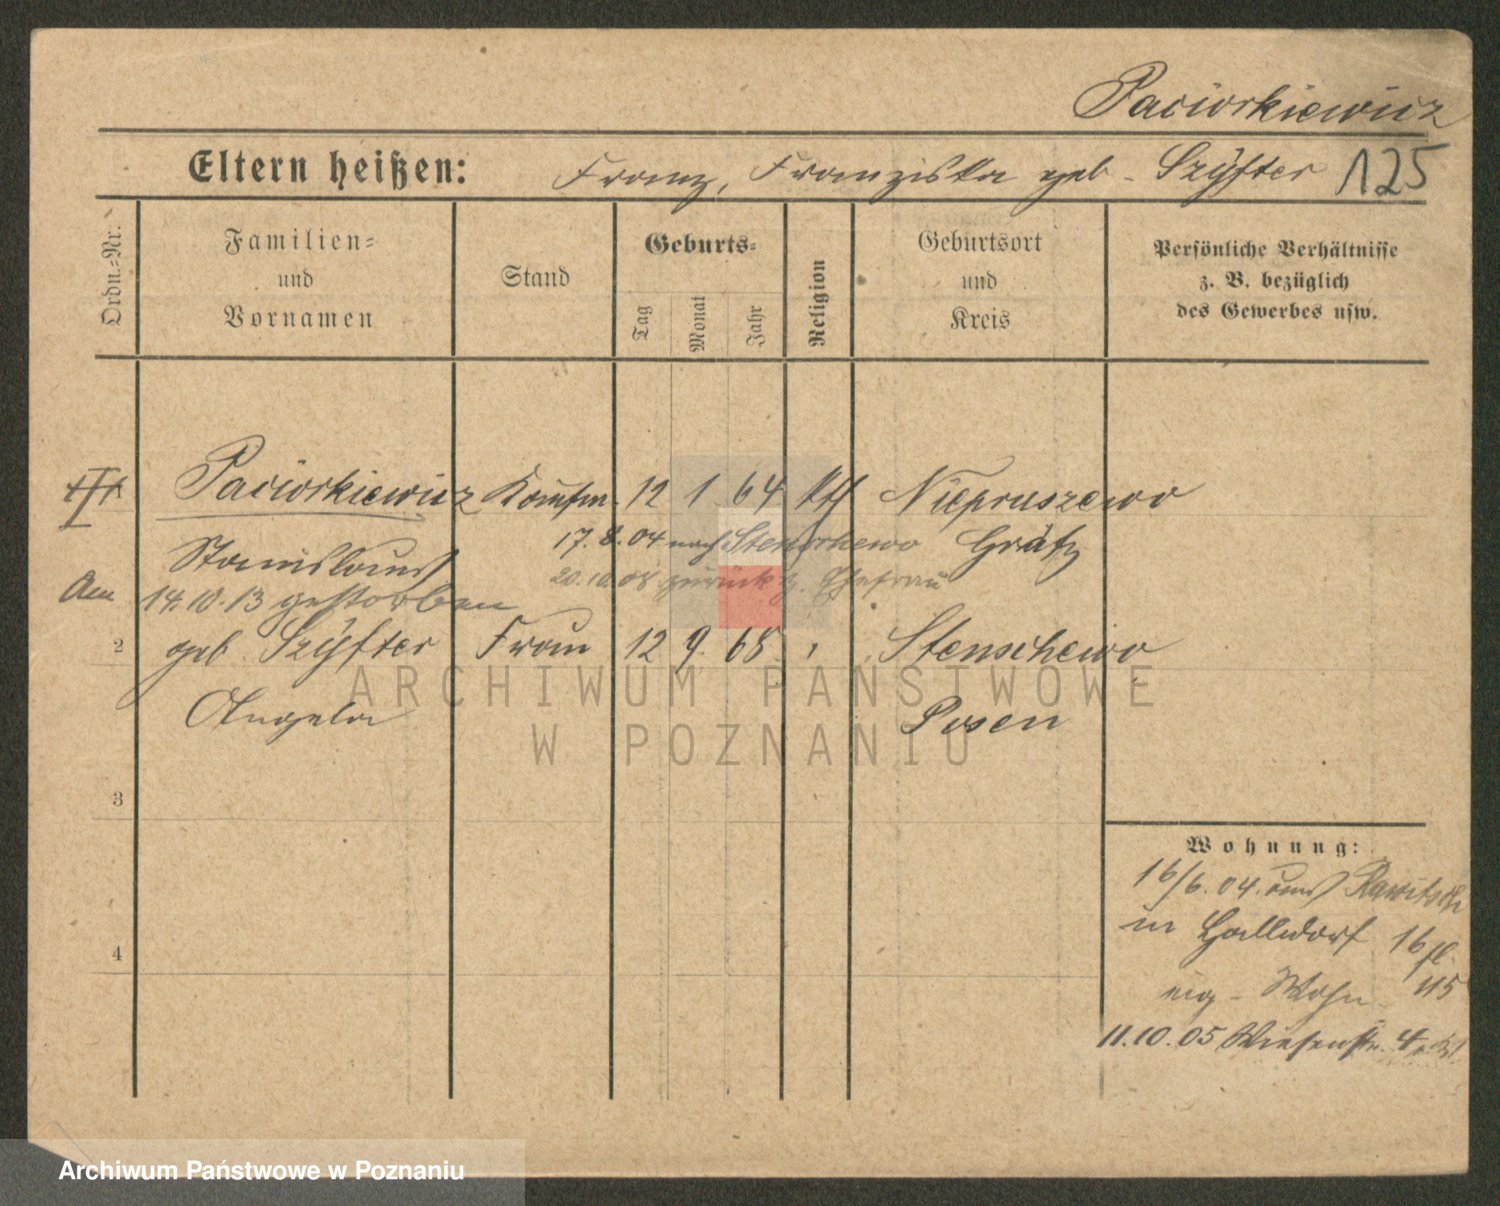 Paciorkiewicz
Eltern heißen: Franz, Franziska geb. Szyfter 125
Ordn.-Nr.
Familien-
und
Vornamen
Stand
Geburts-
Tag
Monat
Jahr
Religion
Geburtsort
und
Kreis
Persönliche Verhältnisse
z. B. bezüglich
des Gewerbes usw.
Paciorkiewicz Kaufm. 12 1 64 kth Niepruszewo
17.8.04 nach Stenschewo Grätz
Stanislaus
20.10.04 zurück z. Ehefrau
Am 14.10.13 gestorben
2 geb. Szyfter Frau 12 9. 68 Stenschewo
Angela Posen
3
4
Wohnung:
16/6.04 aus Rawitsch
in Halldorf 16
Wohn. 115
11.10.05 Wiesenstr. 4
ARCHIWUM PAŃSTWOWE
W POZNANIU
Archiwum Państwowe w Poznaniu